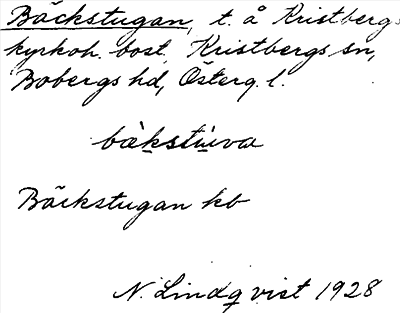 Bäckstugan, t. å Kristbergs
kyrkoh. bost., Kristbergs sn,
Bobergs hd, Österg. l.
bàkstùva
Bäckstugan kb
N. Lindqvist 1928